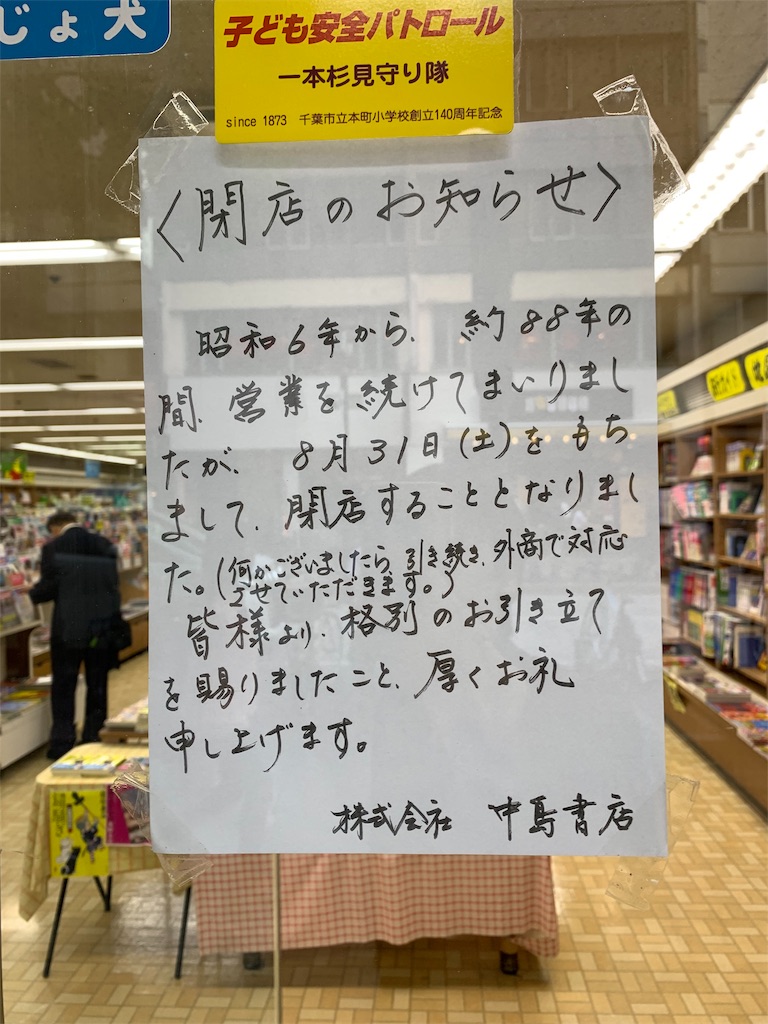 じょ犬
子ども安全パトロール
一本杉見守り隊
since 1873 千葉市立本町小学校創立140周年記念
〈閉店のお知らせ〉
昭和6年から、約88年の
間、営業を続けてまいりまし
たが、8月31日(土)をもち
まして、閉店することとなりまし
た。(何かございましたら、引き続き、外商で対応
させていただきます。)
皆様より、格別のお引き立て
を賜りましたこと、厚くお礼
申し上げます。
株式会社 中島書店